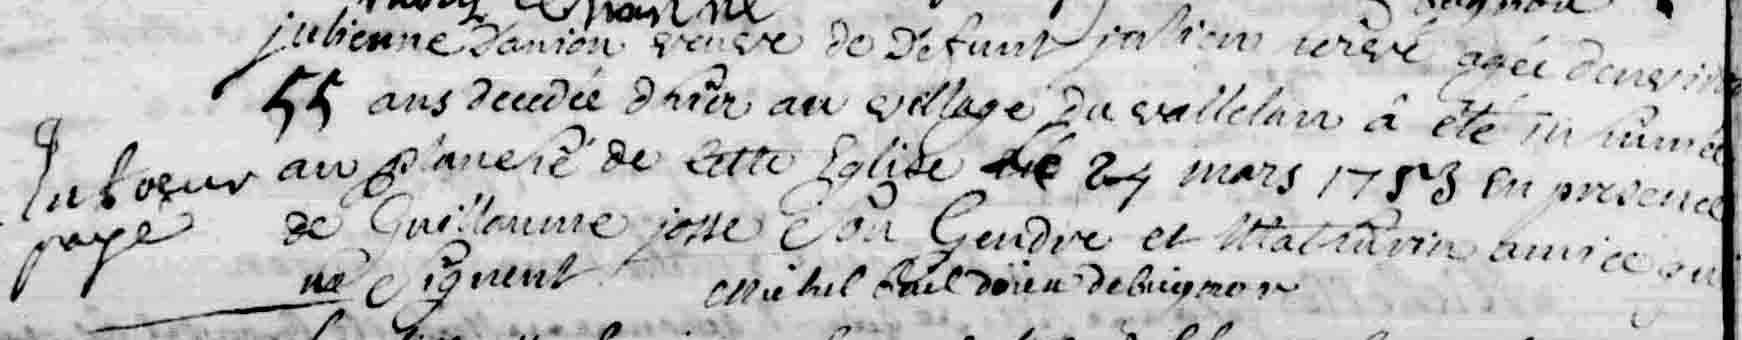 julienne danion veuve de defunt julien hervé agée denviron
55 ans decedée dhier au village du vallelan a été inhumée
au planché de cette Eglise le 24 mars 1753 En presence
de Guillaume josse son Gendre et Mathurin amice qui
ne Signent Michel doien de buignon
payé